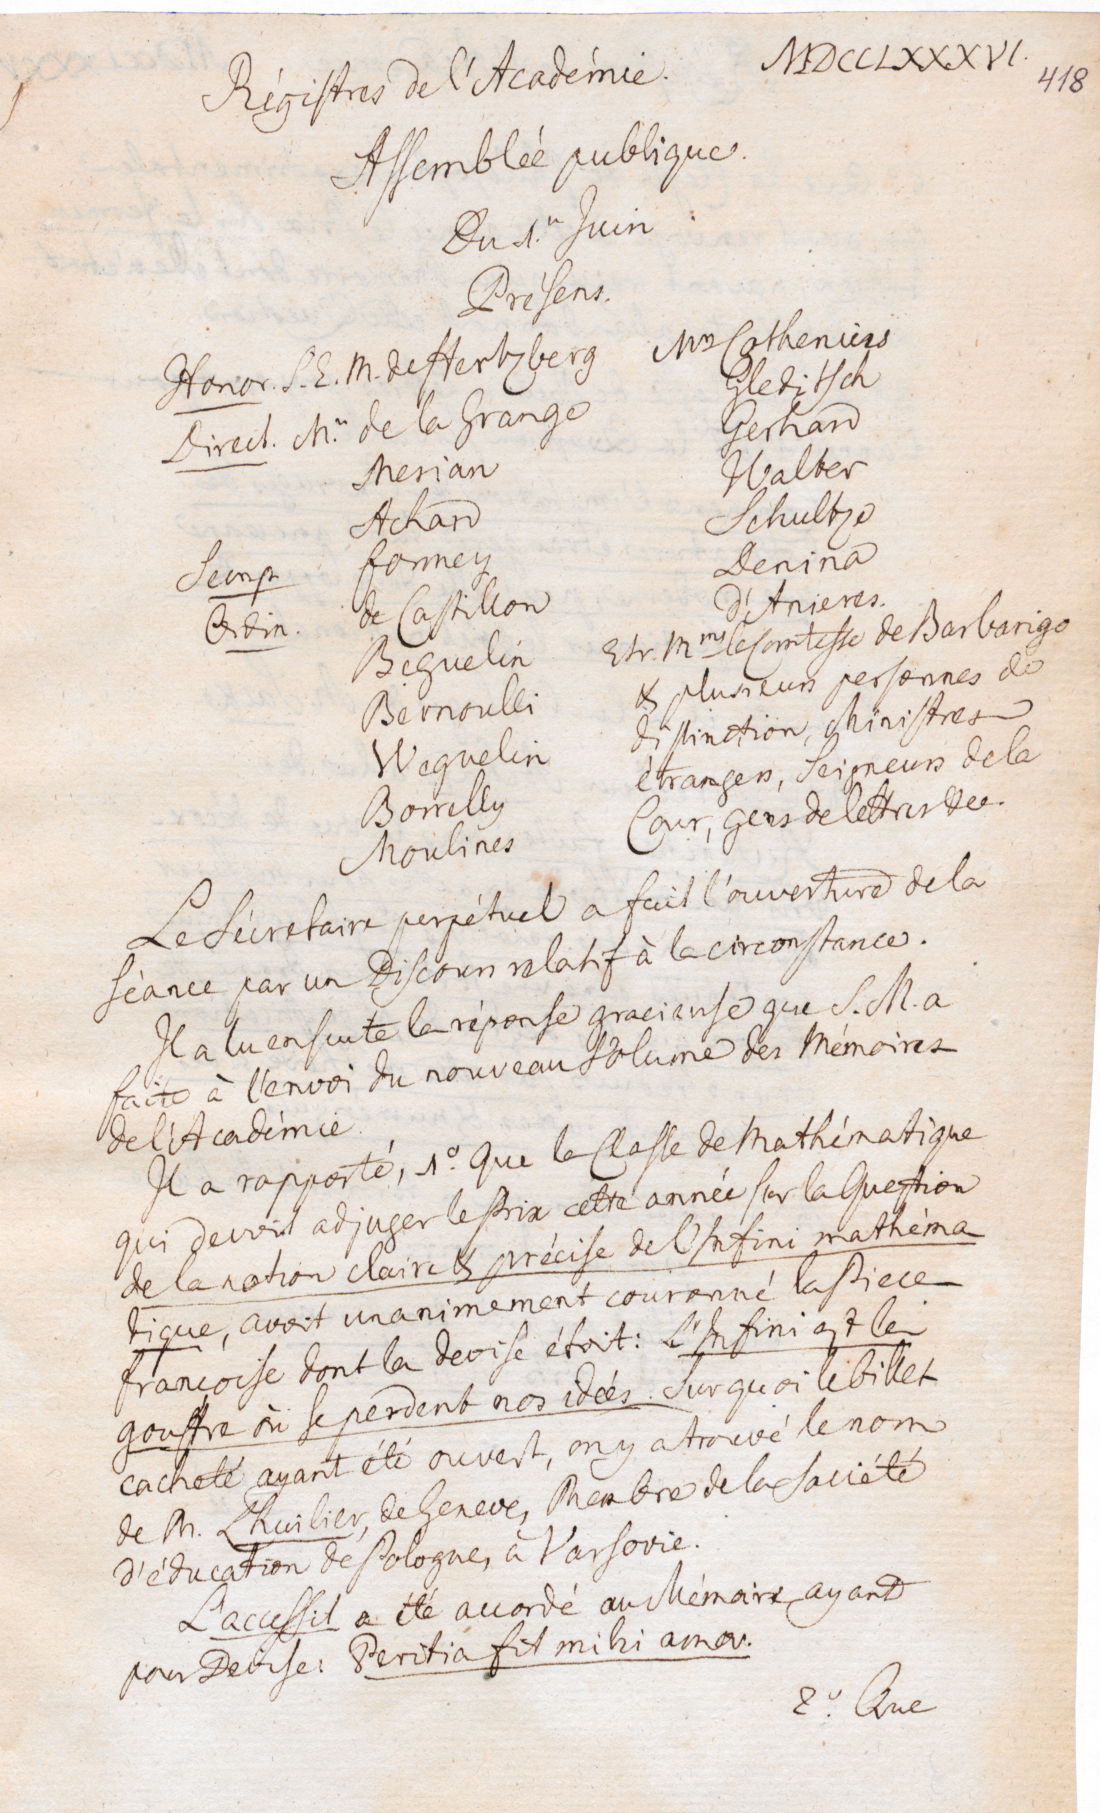 MDCCLXXXVI.
418
Régistres de l'Académie.
Assemblée publique.
Du 1.r Juin
Présens.
Honor. S. E. M. de Hertzberg
Direct. Mr. de la Grange
Merian
Achard
Formey
de Castillon
Beguelin
Bernoulli
Weguelin
Borrelly
Moulines
Ordin.
Mrs Cothenius
Gleditsch
Gerhard
Walter
Schultze
Denina
d'Anieres.
Etr. Mme la Comtesse de Barbarigo
& plusieurs personnes de
distinction, Ministres
étrangers, Seigneurs de la
Cour, gens de lettres &c.
Le Sécretaire perpétuel a fait l'ouverture de la
séance par un Discours relatif à la circonstance.
Il a lu ensuite la réponse gracieuse que S. M. a
faite à l'envoi du nouveau Volume des Mémoires
de l'Académie.
Il a rapporté, 1o. Que la Classe de Mathématique
qui devoit adjuger le Prix cette année sur la Question
de la notion claire & précise de l'Infini mathéma
tique, avoit unanimement couronné la Piece
françoise dont la devise étoit: L'Infini est le
gouffre où se perdent nos idées. Surquoi le billet
cacheté ayant été ouvert, on y a trouvé le nom
de M. L'huilier, de Geneve, Membre de la Société
d'éducation de Pologne, à Varsovie.
L'accessit a été accordé au Mémoire ayant
pour Devise: Peritia fit mihi amor.
2o. Que